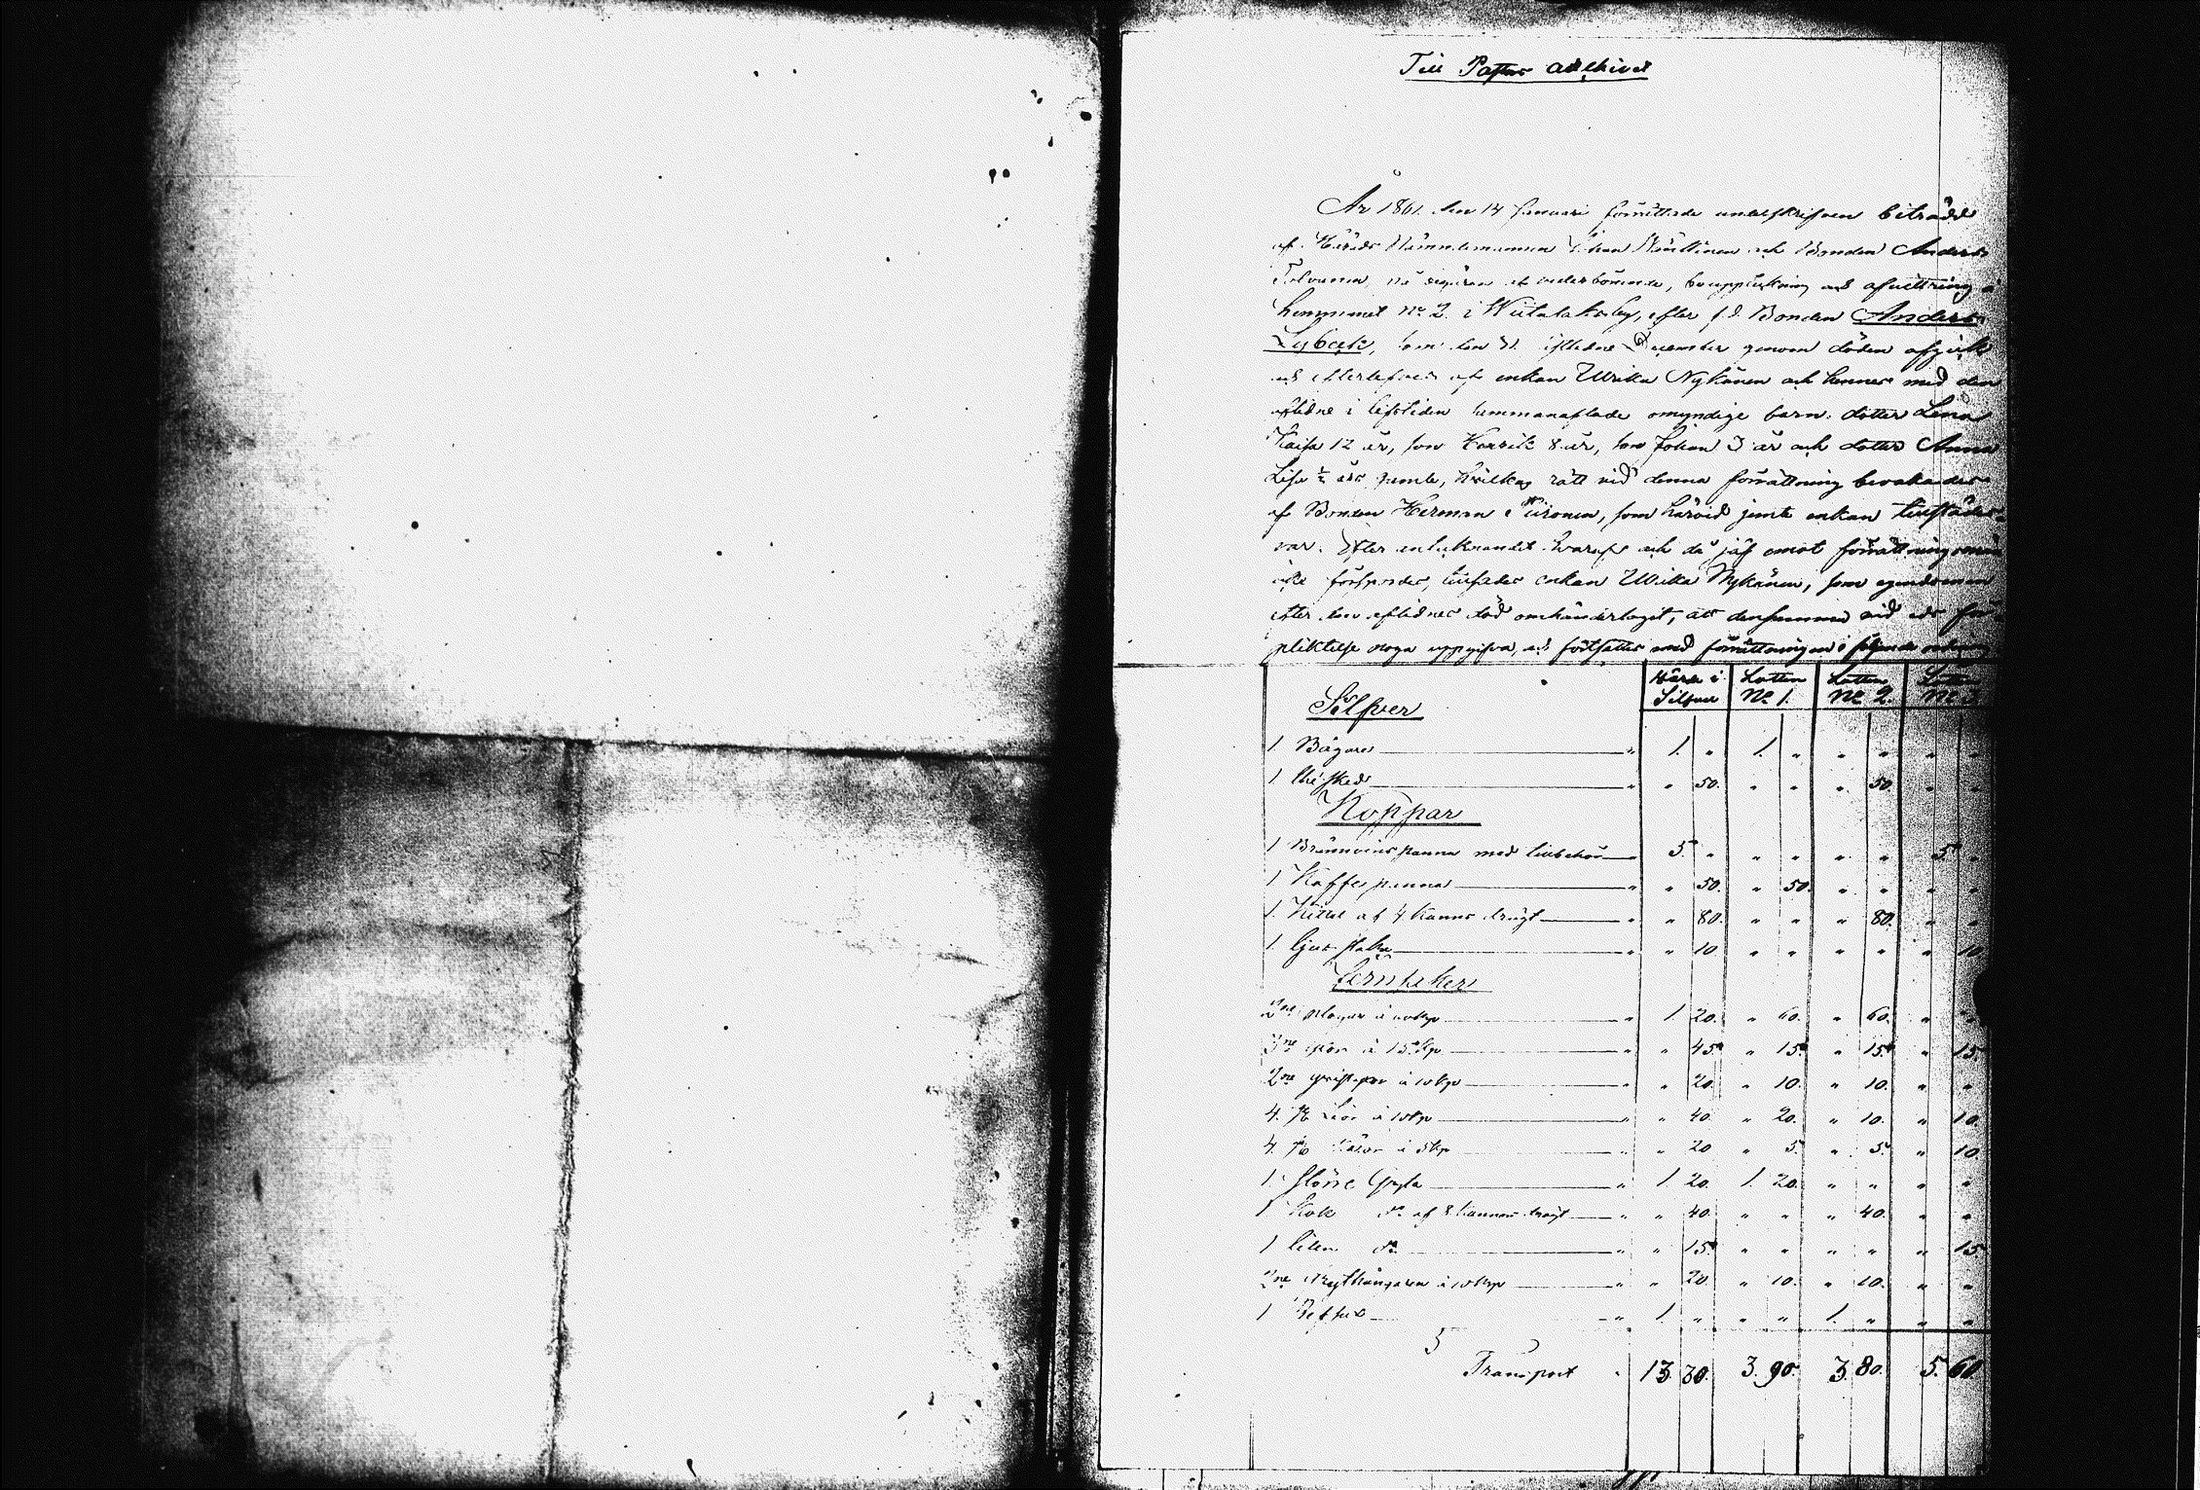 Till Pastors archivet
År 1861 den 14 Januari förrättade underskrifven biträdd
af Härads Nämndemannen Johan och Bonden Anders
Tolvanen, på begäran af vederbörande, bouppteckning och afvittring å
hemmanet No 2 i by, efter f.d. Bonden Anders
Lybeck, som den 31 sistledne December genom döden afgick
och efterlefves af enkan Ulrika Nykänen och hennes med den
aflidne i lifstiden sammanaflade omyndige barn: dotter Lena
Kaisa 12 år, son Henrik 8 år, son Johan 3 år och dotter Anna
Lisa ½ års gamla, hvilkas rätt vid denna förrättning bevakades
af Bonden Herman Piironen, som härvid jemte enkan tillstädes
var. Efter anteknandet häraf och då jäf emot förrättningsmän
icke försports, tillsades enkan Ulrika Nykänen, som egendomen
efter den aflidnes död omhänderhaft, att densamma vid eds för-
pliktelse noga uppgifva, och fortsattes med förrättningen i följande
Silfver Värde i Silfver Lotten No 1. Lotten No 2. Lotten No 3.
1 Bägare " 1. " 1. " " " " "
1 thésked " " 50. " " " 50. " "
Koppar
1 Brännvins panna med tillbehör " 5. " " " " " 5. "
1 Kaffepanna " " 50. " 50. " " " "
1 Kittel af 4 kannor drygt " " 80. " " " 80. " "
1 ljusstake " " 10 " " " " " 10
Jernsaker
2ne plogar à 60 kop " 1. 20. " 60. " 60. " "
3ne yxor à 15 kop " " 45. " 15. " 15. " 15.
2ne à 10 kop " " 20. " 10. " 10. " "
4 st Liar à 10 kop " " 40. " 20. " 10. " 10.
4 st Skäror à 5 kop " " 20 " 5. " 5. " 10.
1 större Gryta " 1. 20. 1. 20. " " " "
1 Kok do af 8 kannor drygt " " 40. " " " 40. " "
1 liten do " " 15. " " " " " 15.
2ne Grythängaren à 10 kop " " 20 " 10. " 10. " "
1 " 1. " " " 1. " " "
Transport " 13. 30. 3. 90. 3. 80. 5. 60.